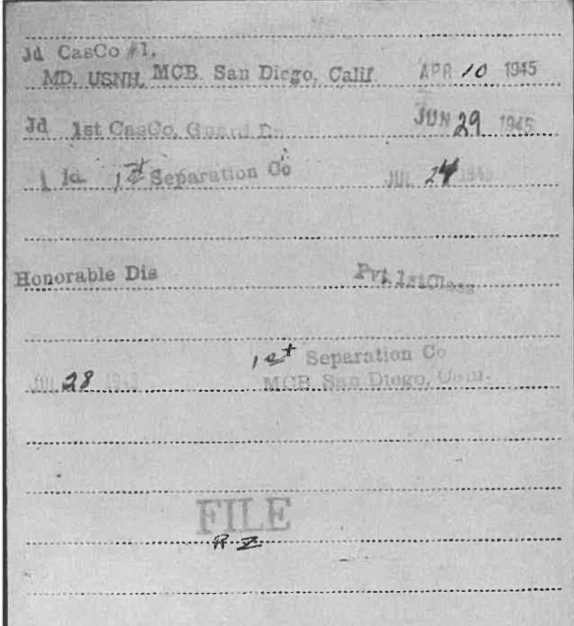 Jd CasCo #1,
MD. USNH, MCB. San Diego, Calif. APR 10 1945
Jd 1st CasCo, Guard JUN 29 1945
Jd 1st Separation Co JUL 24 1945
Honorable Dis Pvt 1stClass
JUL 28 1945 1st Separation Co
MCB San Diego, Calif.
FILE